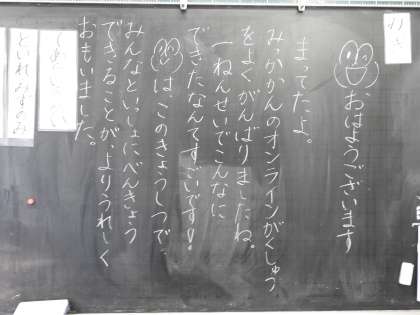 おはようございます
まってたよ。
みっかかんのオンラインがくしゅう
をよくがんばりましたね。
一ねんせいでこんなに
できたなんてすごいです!
は、このきょうしつで、
みんなといっしょにべんきょう
できることが、よりうれしく
おもいました。
といれ みずのみ